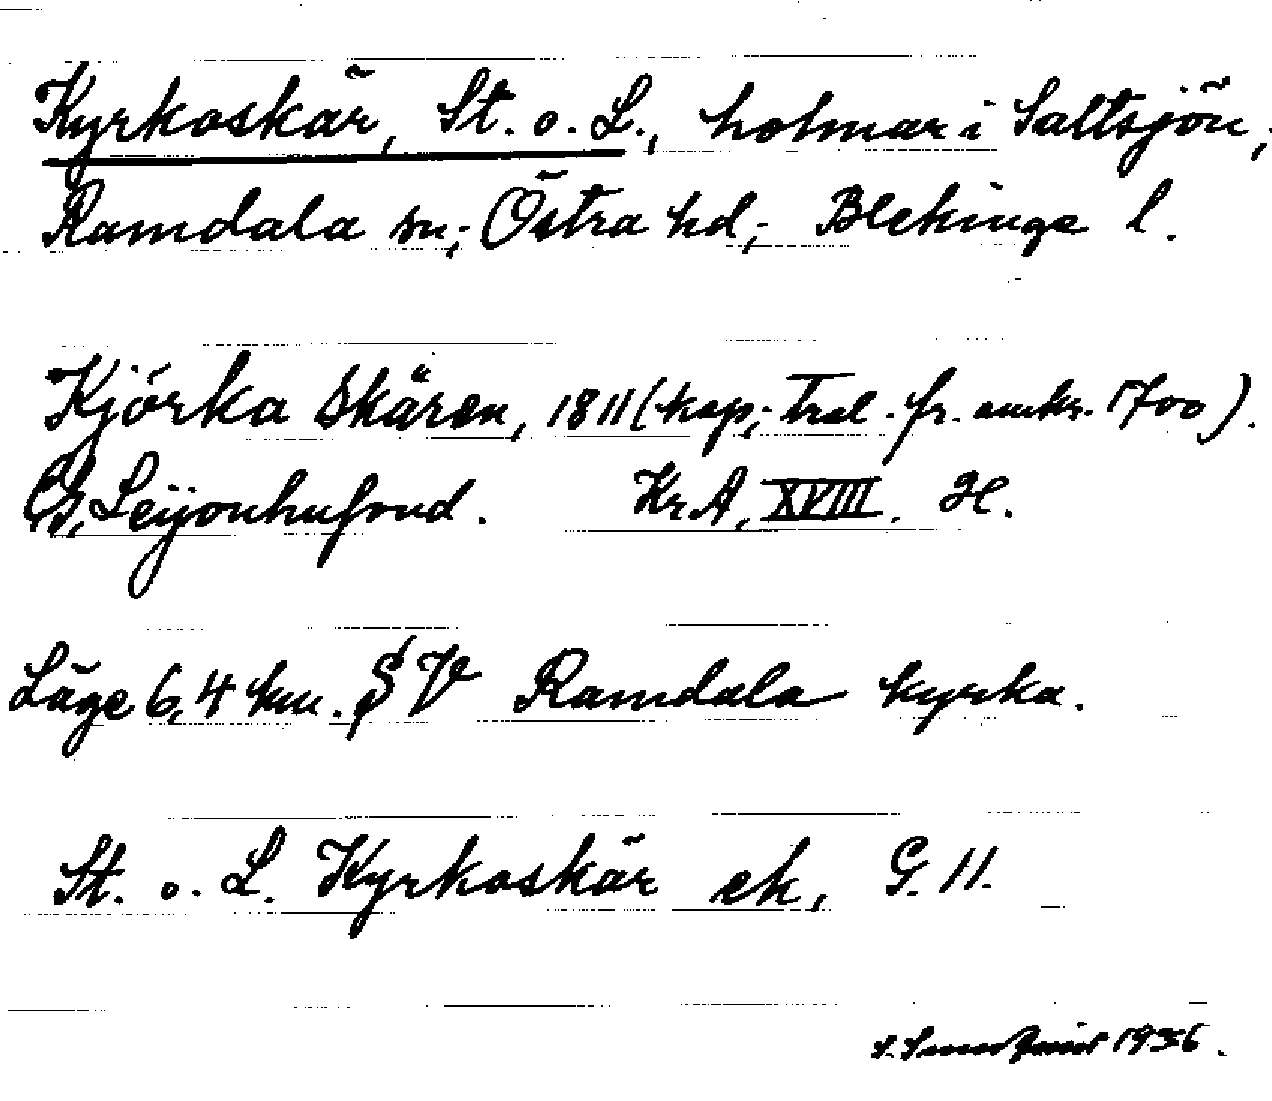 Kyrkoskär, St. o. L., holmar i Saltsjön,
Ramdala sn, Östra hd, Blekinge l.
Kjörka Skären, 1811 (kop, trol. fr. omkr. 1700).
Leijonhufvud. Kr A, XVIII. H.
Läge 6,4 km. S V Ramdala kyrka.
St. o. L. Kyrkoskär ek, G. 11.
1936.